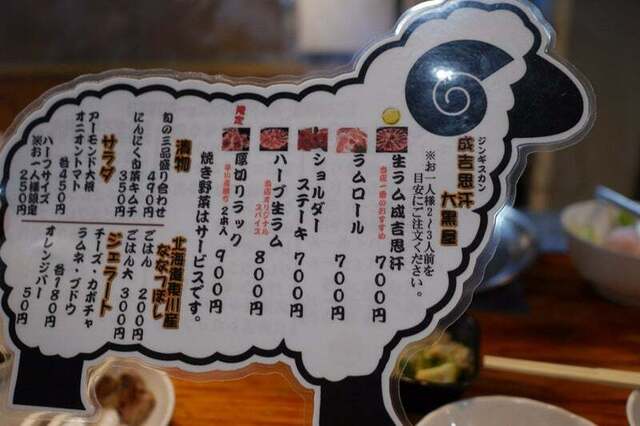 ジンギスカン
成吉思汗
大黒屋
※お一人様2~3人前を
目安にご注文ください。
生ラム成吉思汗
当店一番のおすすめ
700円
ラムロール
700円
ショルダー
ステーキ
700円
ハーブ生ラム
当店オリジナル
スパイス
800円
限定
厚切りラック
2本入
900円
焼き野菜はサービスです。
漬物
旬の三品盛り合わせ
490円
にんにく白菜キムチ
350円
サラダ
アーモンド大根
オニオントマト
各450円
ハーフサイズ
※お一人様限定
250円
北海道東川産
ななつぼし
ごはん
200円
ごはん大
300円
ジェラート
チーズ・カボチャ
ラムネ・ブドウ
各180円
オレンジバー
50円